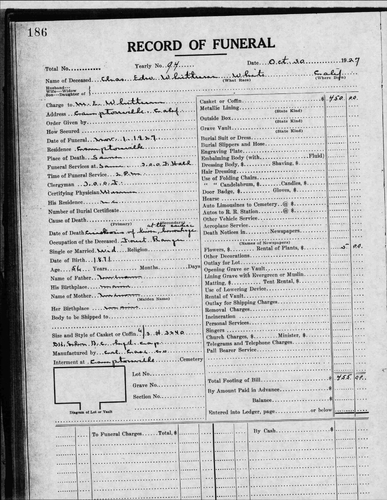 186
RECORD OF FUNERAL
Total No. Yearly No. 94 Date Oct. 30 1927
Name of Deceased Chas. Edw Whittum White Calif
(What Race) (Where Born)
Husband
Wife—Widow of
Son—Daughter
Charge to M. E. Whittum
Address Camptonville Calif
Order Given by
How Secured
Date of Funeral Nov. 1, 1927.
Residence Camptonville
Place of Death Same
Funeral Services at Same I.O.O.F. Hall
Time of Funeral Service 2 P.M.
Clergyman I.O.O.F.
Certifying Physician
His Residence
Number of Burial Certificate
Cause of Death
(Primary) (Secondary)
Date of Death
Occupation of the Deceased Forest Ranger
Single or Married Wid. Religion
Date of Birth 1871
Age 56 Years Months Days
Name of Father
His Birthplace
Name of Mother
(Maiden Name)
Her Birthplace
Body to be Shipped to
Size and Style of Casket or Coffin
Manufactured by Cal. Cas. Co
Interment at Camptonville Cemetery
Lot No.
Grave No.
Section No.
Diagram of Lot or Vault
Casket or Coffin $ 450 00
Metallic Lining
(State Kind)
Outside Box
(State Kind)
Grave Vault
(State Kind)
Burial Suit or Dress
Burial Slippers and Hose
Engraving Plate
Embalming Body (with Fluid)
Dressing Body, $ Shaving, $
Hair Dressing
Use of Folding Chairs
" " Candelabrum, $ Candles, $
Door Badge, $ Gloves, $
Hearse
Auto Limousines to Cemetery @ $
Autos to R. R. Station @ $
Other Vehicle Service
Aeroplane Service
Death Notices in Newspapers
(Names of Newspapers)
Flowers, $ Rental of Plants, $ 5 00
Other Decorations
Outlay for Lot
Opening Grave or Vault
Lining Grave with Evergreen or Muslin
Matting, $ Tent Rental, $
Use of Lowering Device
Rental of Vault
Outlay for Shipping Charges
Removal Charges
Incineration
Personal Services
Singers
Church Charges, $ Minister, $
Telegrams and Telephone Charges
Pall Bearer Service
Total Footing of Bill $ 455 00
By Amount Paid in Advance
Balance
Entered into Ledger, page or below
To Funeral Charges Total, $ By Cash $